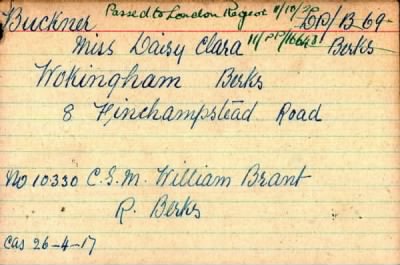 Buckner Passed to London Regent 11/10/20 DP/B 69
Miss Daisy Clara 11/PP/16643 Berks
Wokingham Berks
8 Finchampstead Road
No 10330 C.S.M. William Brant
R. Berks
Cas 26-4-17